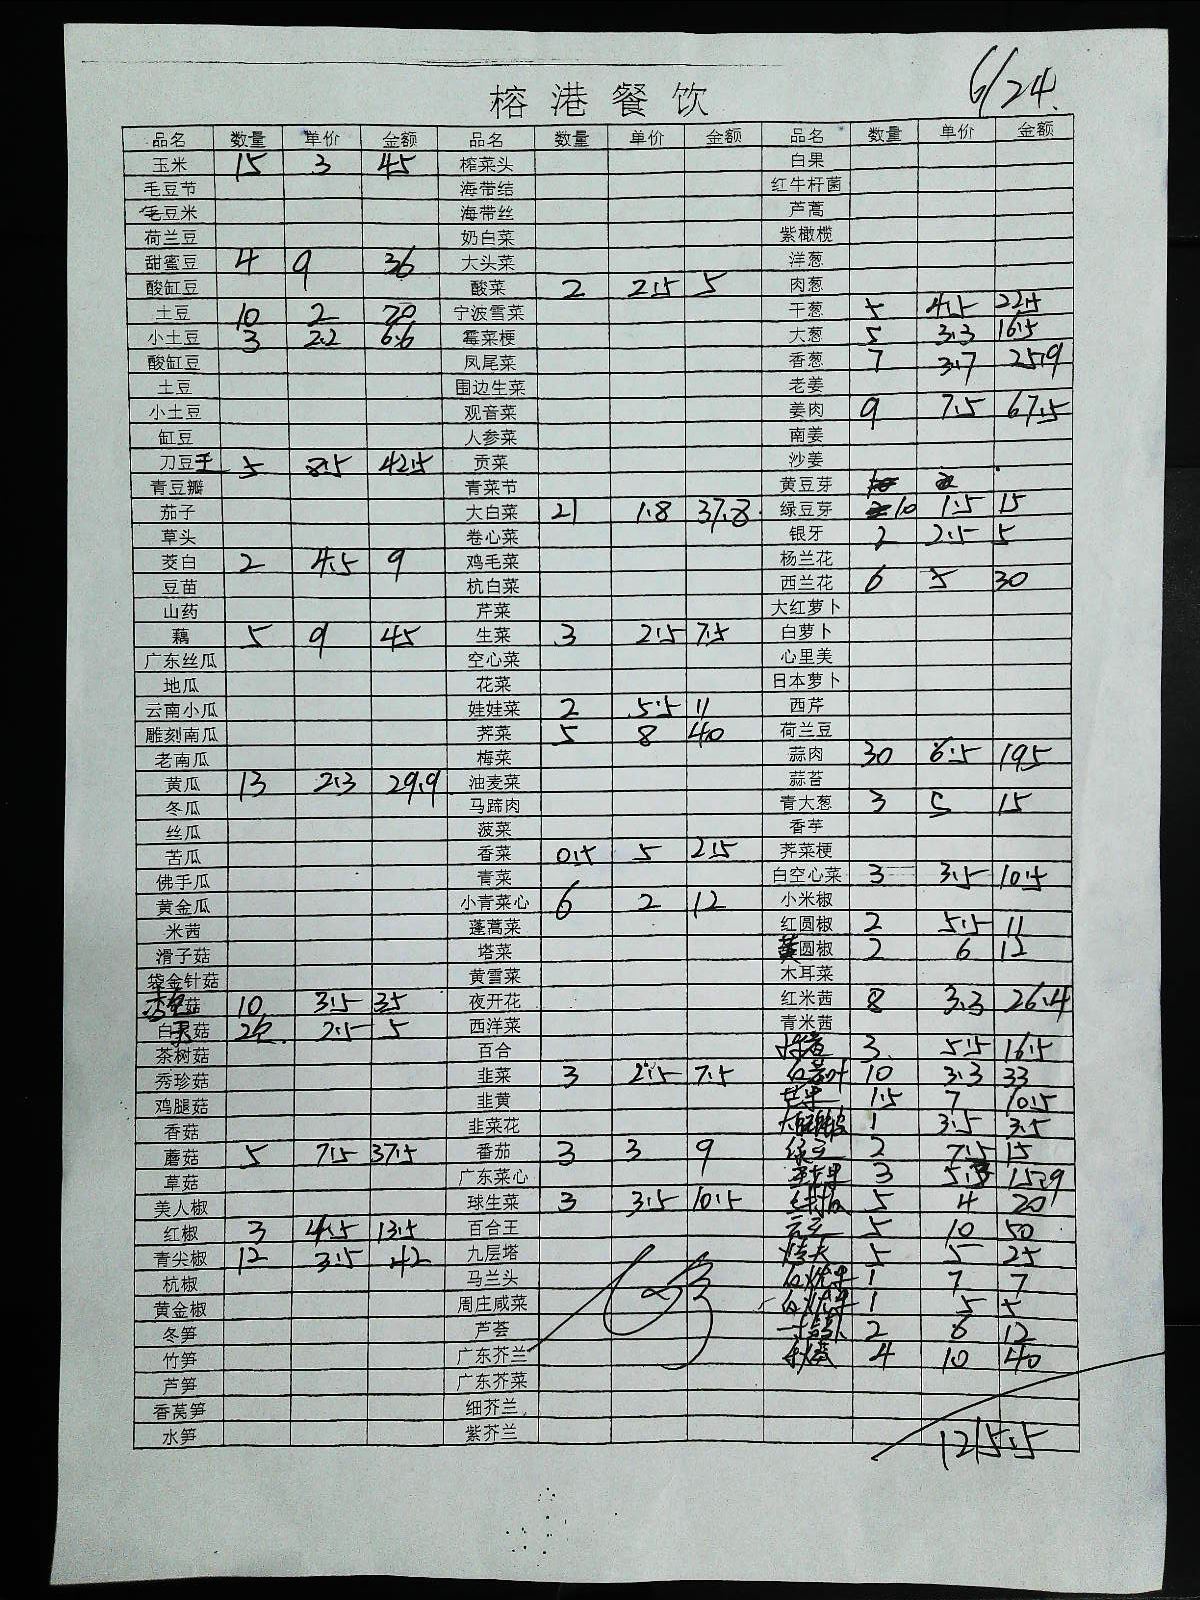 6/24.
榕港餐饮
品名 数量 单价 金额 品名 数量 单价 金额 品名 数量 单价 金额
玉米 15 3 45 榨菜头 白果
毛豆节 海带结 红牛杆菌
毛豆米 海带丝 芦蒿
荷兰豆 奶白菜 紫橄榄
甜蜜豆 4 9 36 大头菜 洋葱
酸缸豆 酸菜 2 2.5 5 肉葱
土豆 10 2 20 宁波雪菜 干葱 5 4.5 22.5
小土豆 3 2.2 6.6 霉菜梗 大葱 5 3.3 16.5
酸缸豆 凤尾菜 香葱 7 3.7 25.9
土豆 围边生菜 老姜
小土豆 观音菜 姜肉 9 7.5 67.5
缸豆 人参菜 南姜
刀豆王 5 8.5 42.5 贡菜 沙姜
青豆瓣 青菜节 黄豆芽
茄子 大白菜 21 1.8 37.8 绿豆芽 10 1.5 15
草头 卷心菜 银牙 2 2.5 5
茭白 2 4.5 9 鸡毛菜 杨兰花
豆苗 杭白菜 西兰花 6 5 30
山药 芹菜 大红萝卜
藕 5 9 45 生菜 3 2.5 7.5 白萝卜
广东丝瓜 空心菜 心里美
地瓜 花菜 日本萝卜
云南小瓜 娃娃菜 2 5.5 11 西芹
雕刻南瓜 荠菜 5 8 40 荷兰豆
老南瓜 梅菜 蒜肉 30 6.5 195
黄瓜 13 2.3 29.9 油麦菜 蒜苔
冬瓜 马蹄肉 青大葱 3 5 15
丝瓜 菠菜 香芋
苦瓜 香菜 0.5 5 2.5 荠菜梗
佛手瓜 青菜 白空心菜 3 3.5 10.5
黄金瓜 小青菜心 6 2 12 小米椒
米茜 蓬蒿菜 红圆椒 2 5.5 11
滑子菇 塔菜 黄圆椒 2 6 12
袋金针菇 黄雪菜 木耳菜
菇 10 3.5 35 夜开花 红米茜 8 3.3 26.4
白灵菇 2包 2.5 5 西洋菜 青米茜
茶树菇 百合 3 5.5 16.5
秀珍菇 韭菜 3 2.5 7.5 10 3.3 33
鸡腿菇 韭黄 芒果 1.5 7 10.5
香菇 韭菜花 1 3.5 3.5
蘑菇 5 7.5 37.5 番茄 3 3 9 绿豆 2 7.5 15
草菇 广东菜心 3 5.3 15.9
美人椒 球生菜 3 3.5 10.5 5 4 20
红椒 3 4.5 13.5 百合王 5 10 50
青尖椒 12 3.5 42 九层塔 5 5 25
杭椒 马兰头 1 7 7
黄金椒 周庄咸菜 1 5 5
冬笋 芦荟 2 6 12
竹笋 广东芥兰 4 10 40
芦笋 广东芥菜
香莴笋 细芥兰
水笋 紫芥兰 1215.5